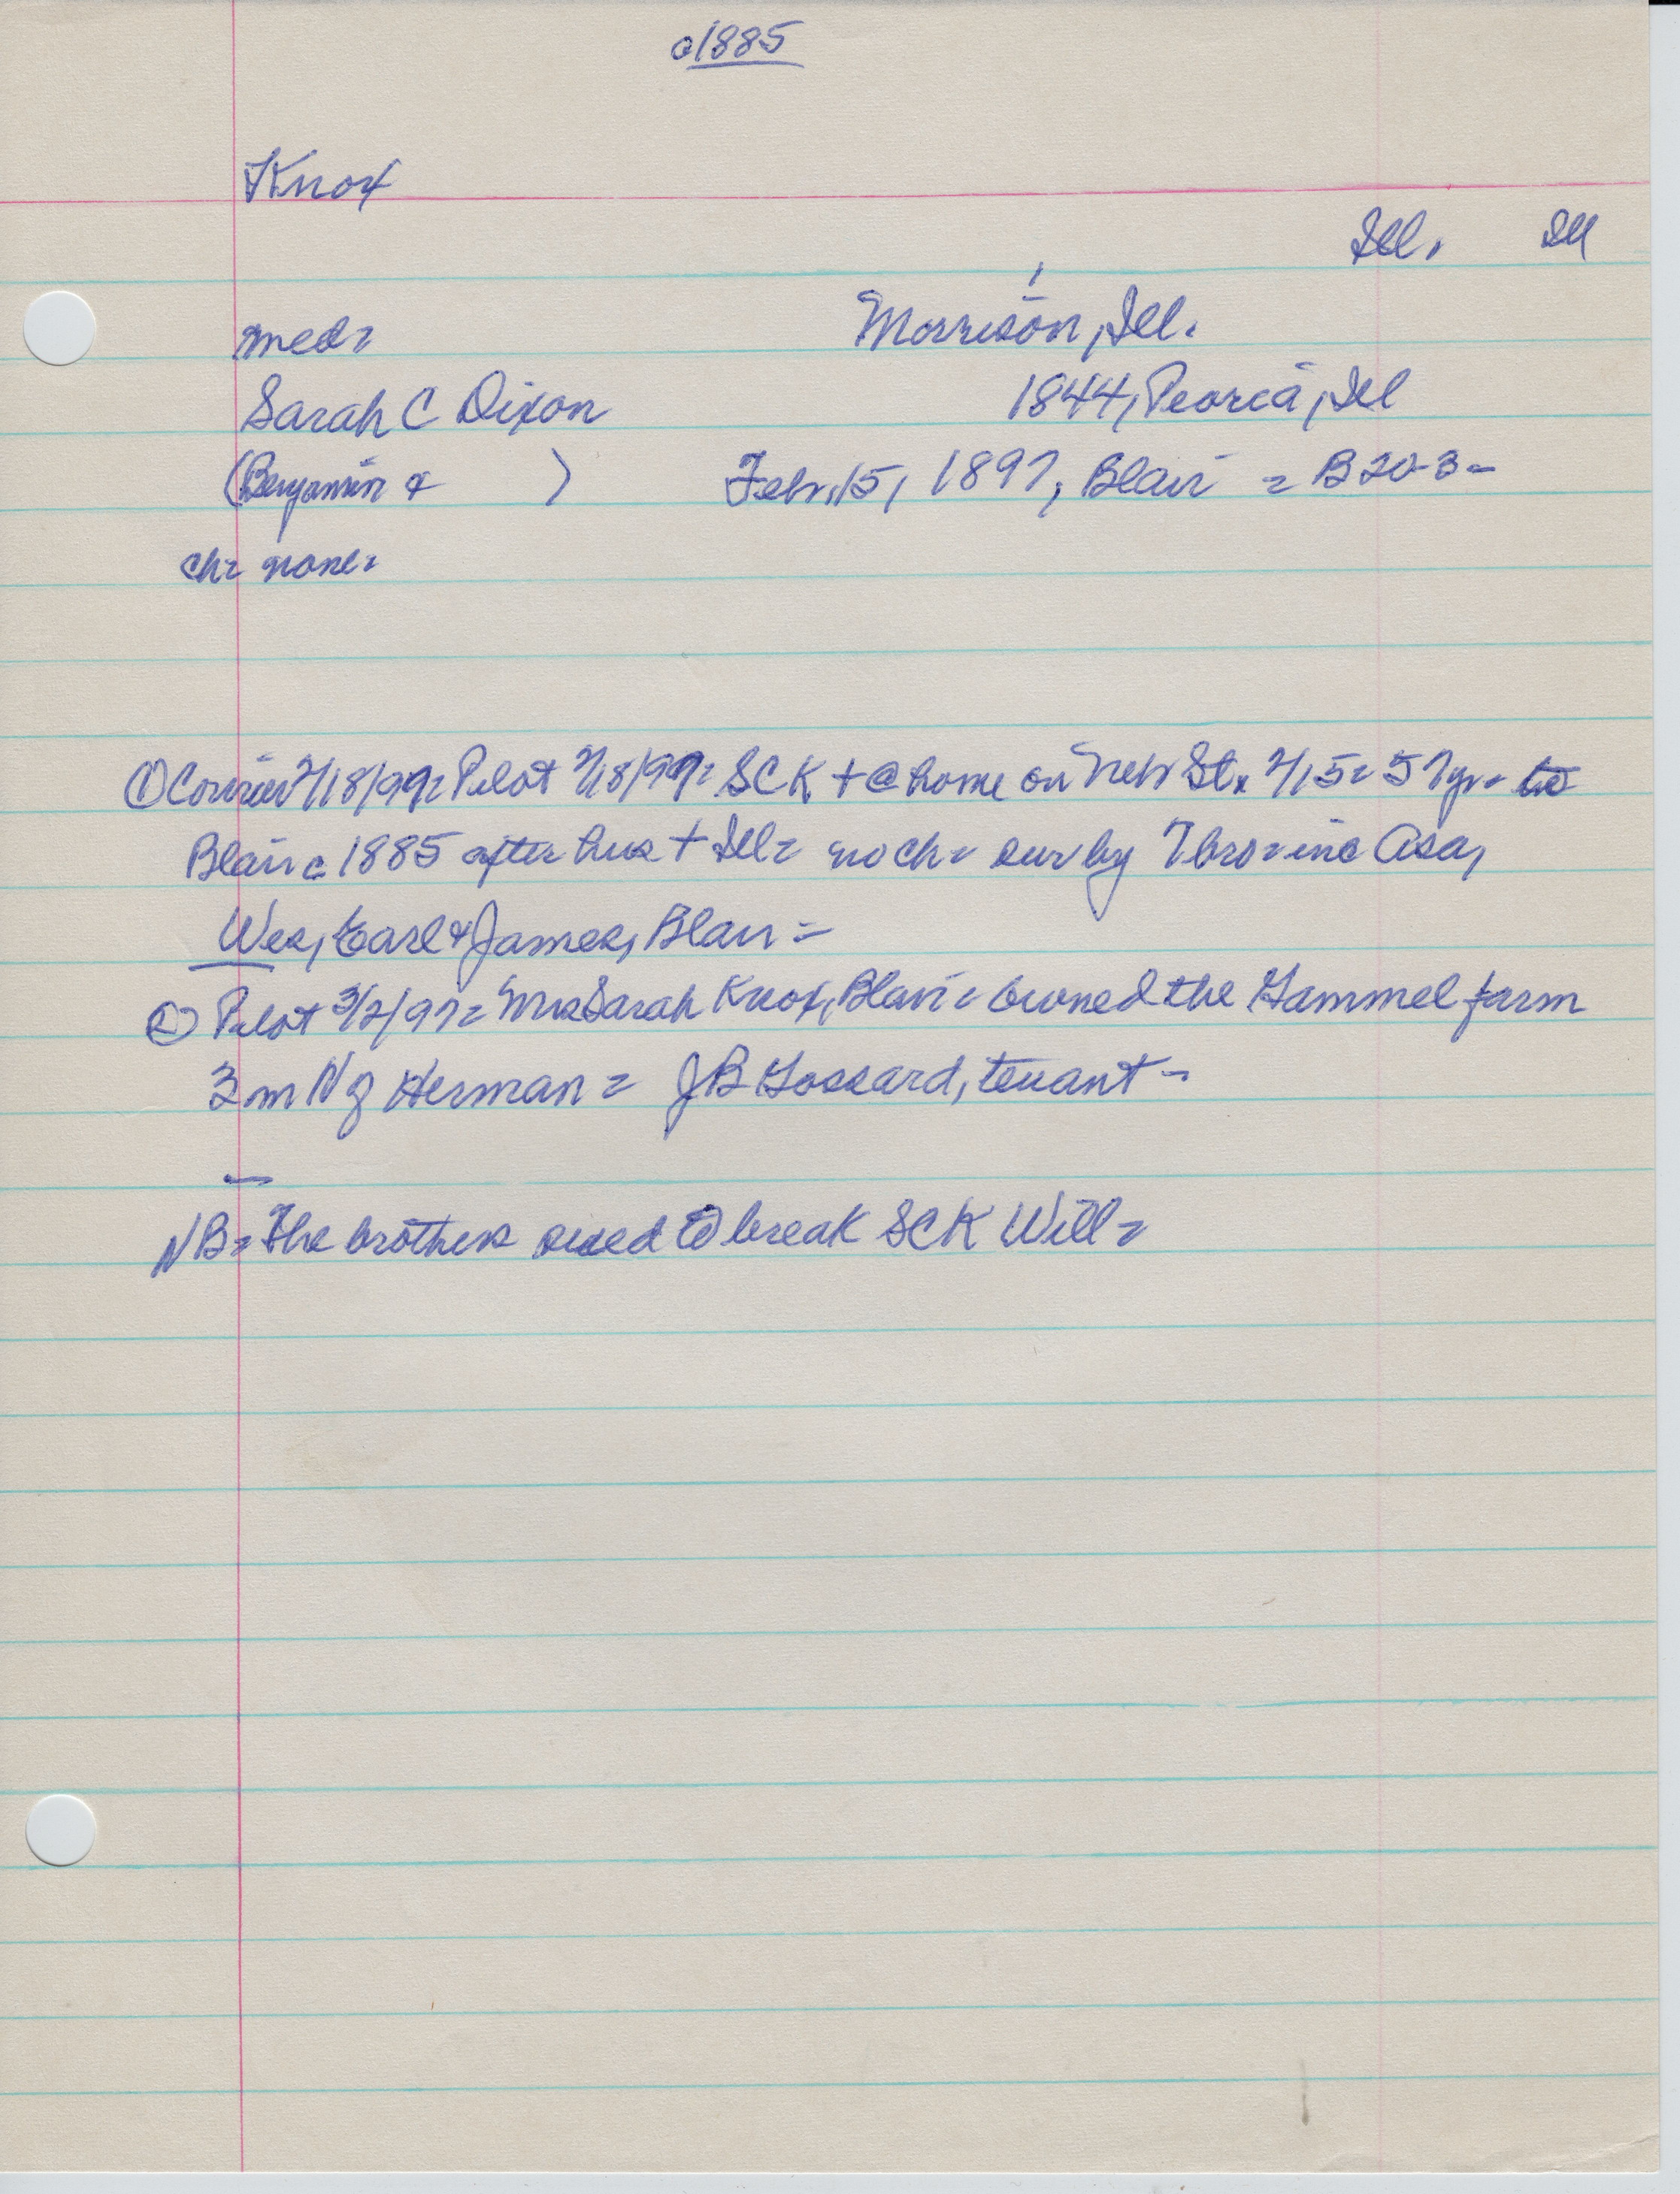 c1885
Knox
Ill. Ill
med= Morrison, Ill.
Sarah C Dixon 1844, Peoria, Ill
(Benjamin & ) Febr. 15, 1897, Blair = B 20-3-
ch= none=
① Courier 2/18/97= Pilot 2/18/97= SCK + @ home on Nebr St. 2/15= 57yr= to
Blair c 1885 after hus + Ill= no ch= sur by 7 bro= inc Asa,
Wes, Earl & James, Blair =
② Pilot 3/2/97= Mrs Sarah Knox, Blair= owned the Gammel farm
3 m N of Herman = JB Gossard, tenant -
—
NB= The brothers sued to break SCK Will=